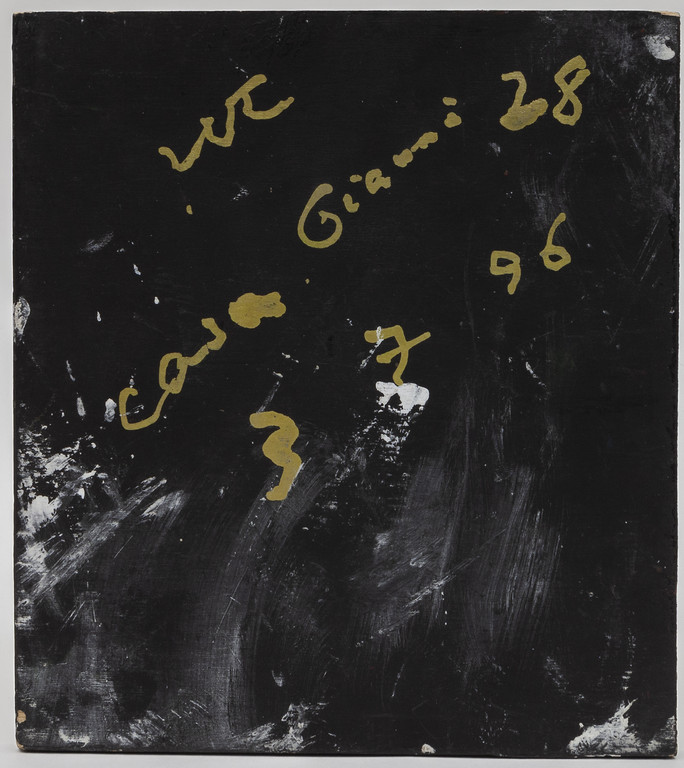 Gianni 28
96
casa 7
3